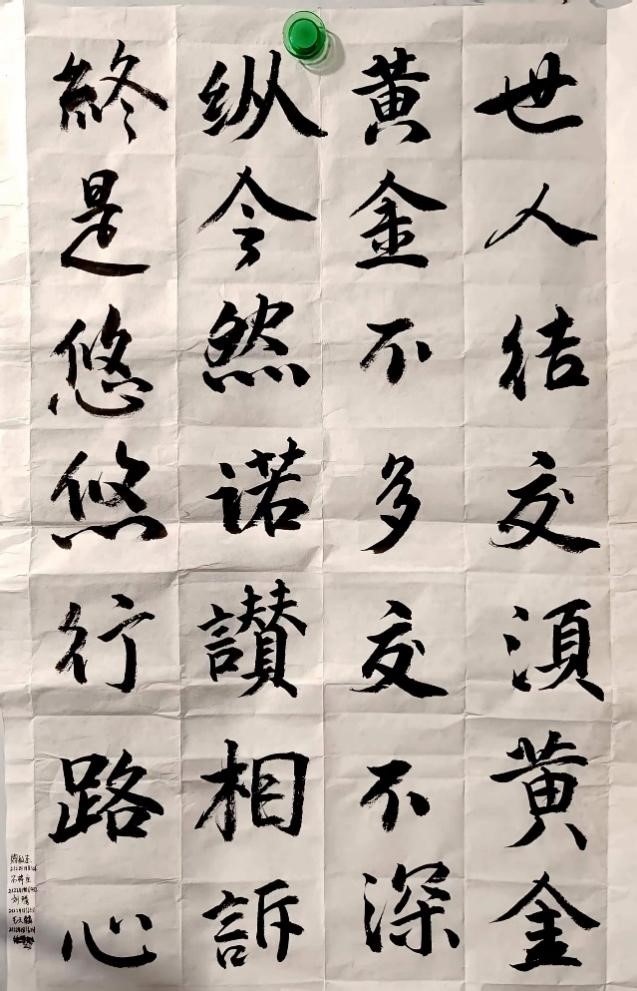 世人结交湏黄金
黄金不多交不深
纵令然诺讃相訴
終是悠悠行路心